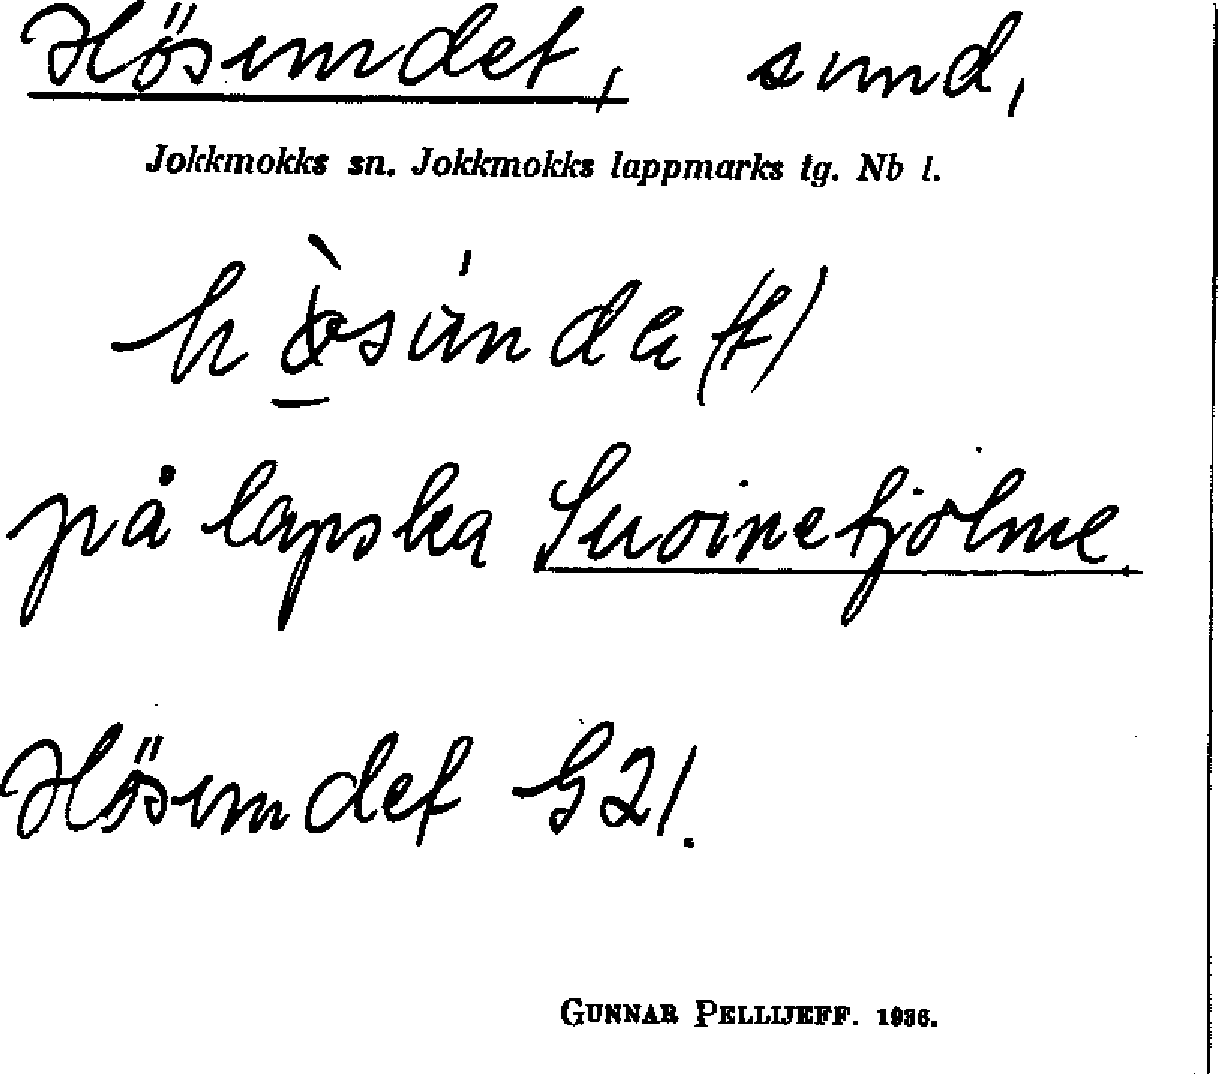 Hösundet, sund,
Jokkmokks sn. Jokkmokks lappmarks tg. Nb l.
på lapska Suoinetjolme.
Hösundet G 21.
GUNNAR PELLIJEFF. 1936.